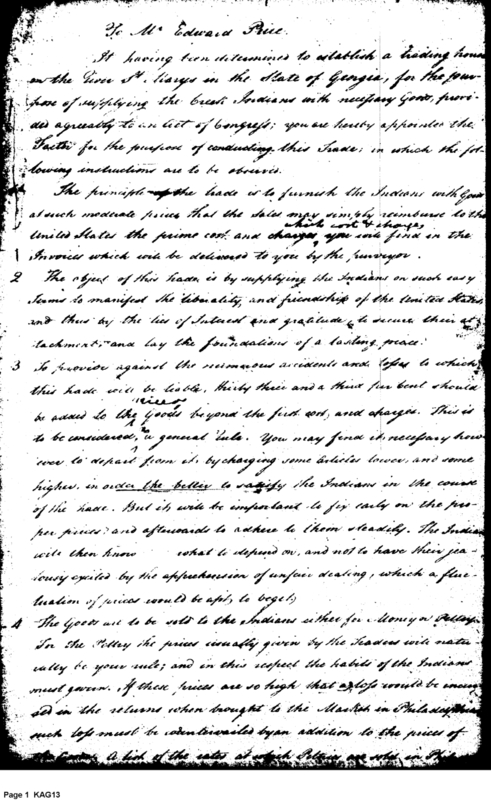 To Mr Edward Price.
It having been determined to establish a trading house
on the River St. Marys in the State of Georgia, for the pur-
pose of supplying the Creek Indians with necessary Goods, provi-
ded agreeably to an Act of Congress; you are hereby appointed the
Factor for the purpose of conducting this Trade; in which the fol-
lowing instructions are to be observed.
The principle of the trade is to furnish the Indians with Goods
at such moderate prices that the sales may simply reimburse to the
which cost & charges
United States the prime cost and charges, you will find in the
1 Invoices which will be delivered to you by the purveyor.
2 The object of this trade is by supplying the Indians on such easy
Terms to manifest the liberality, and friendship of the United States
and thus by the ties of Interest and gratitude, to secure their at
tachment; and lay the foundations of a lasting peace.
3 To provide against the numerous accidents and losses to which
this trade will be liable, thirty three and a third per Cent should
prices
be added to the Goods beyond the first cost, and charges. This is
to be considered, a general rule. You may find it necessary how-
ever to depart from it, by charging some Articles lower, and some
higher, in order the better to satisfy the Indians in the course
of the trade. But it will be important to fix early on the pro-
per prices; and afterwards to adhere to them steadily. The Indians
will then know what to depend on, and not to have their jea-
lousy excited by the apprehension of unfair dealing, which a fluc-
tuation of prices would be apt, to beget;
4 The Goods are to be sold to the Indians either for Money or Peltry.
For the Peltry the prices usually given by the Traders will natu
rally be your rule; and in this respect the habits of the Indians
must govern. If these prices are so high that a loss would be incur
red in the returns when brought to the Market in Philadelphia
such loss must be countervailed by an addition to the prices of
the Goods. A list of the rates at which Peltries are sold in
Page 1 KAG13